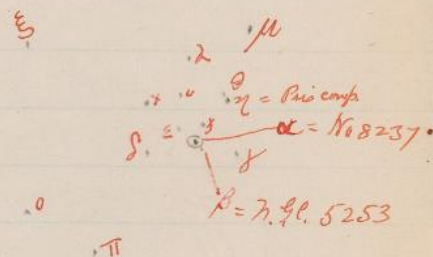 ξ
μ
λ
κ
θ
η = Pris comp.
δ
ε
ζ
α = No 8237.
γ
ο
β = N. Gl. 5253
π